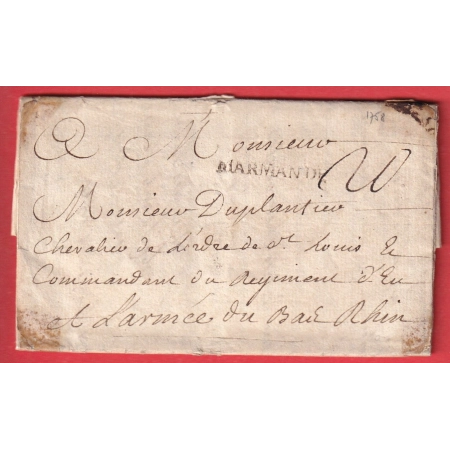 1758
A Monsieur
MARMANDE
Monsieur Duplantier
Chevalier de L'ordre de St Louis &
Commandant du Regiment d'Eu
A L'armée du Bas Rhin